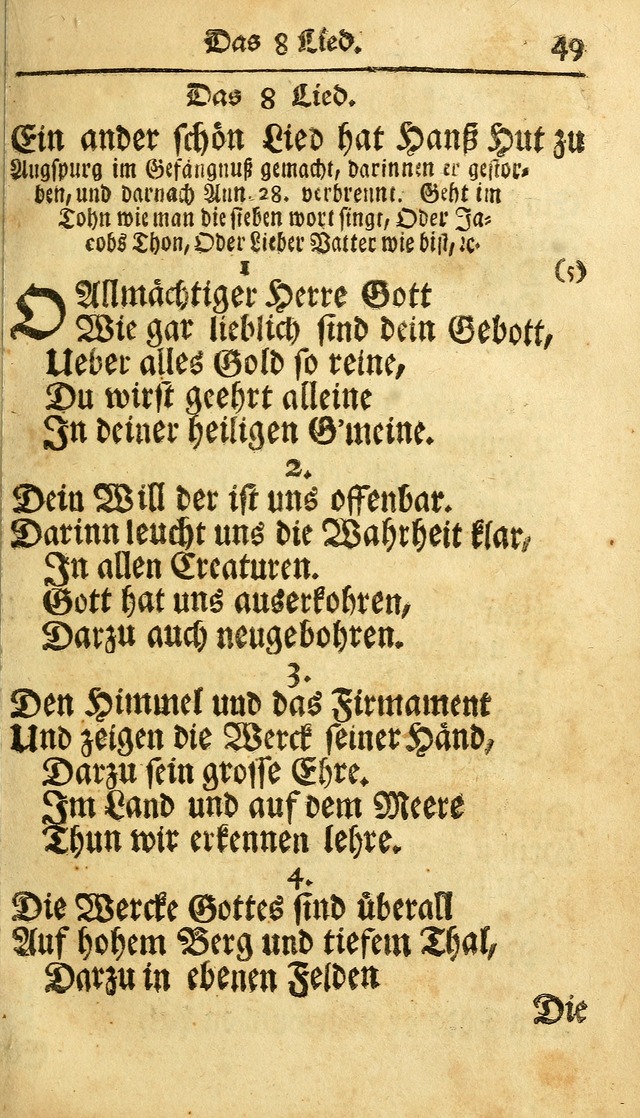 Das 8 Lied. 49
Das 8 Lied.
Ein ander schön Lied hat Hanß Hut zu
Augspurg im Gefängnuß gemacht, darinnen er gestor-
ben, und darnach Ann. 28. verbrennt. Geht im
Tohn wie man die sieben wort singt, Oder Ja-
cobs Thon, Oder Lieber Vatter wie bist, ꝛc.
1 (5)
O Allmächtiger Herre Gott
Wie gar lieblich sind dein Gebott,
Ueber alles Gold so reine,
Du wirst geehrt alleine
In deiner heiligen G'meine.
2.
Dein Will der ist uns offenbar.
Darinn leucht uns die Wahrheit klar,
In allen Creaturen.
Gott hat uns auserkohren,
Darzu auch neugebohren.
3.
Den Himmel und das Firmament
Und zeigen die Werck seiner Händ,
Darzu sein grosse Ehre.
Im Land und auf dem Meere
Thun wir erkennen lehre.
4.
Die Wercke Gottes sind überall
Auf hohem Berg und tiefem Thal,
Darzu in ebenen Felden
Die